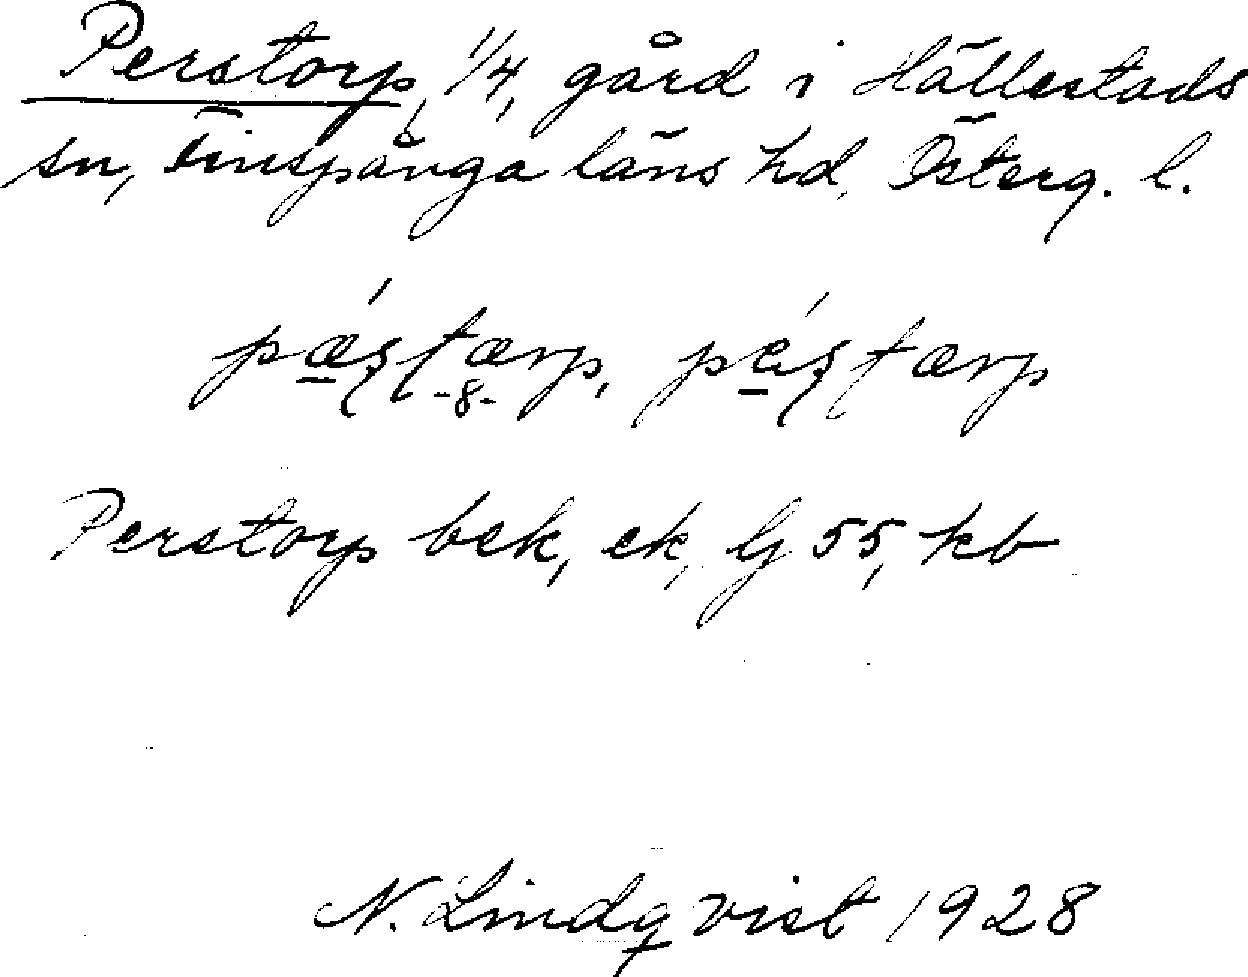 Perstorp, 1/4, gård i Hällestads
sn, Finspånga läns hd, Österg. l.
Perstorp bek, ek, Gj 55, kb
N. Lindqvist 1928